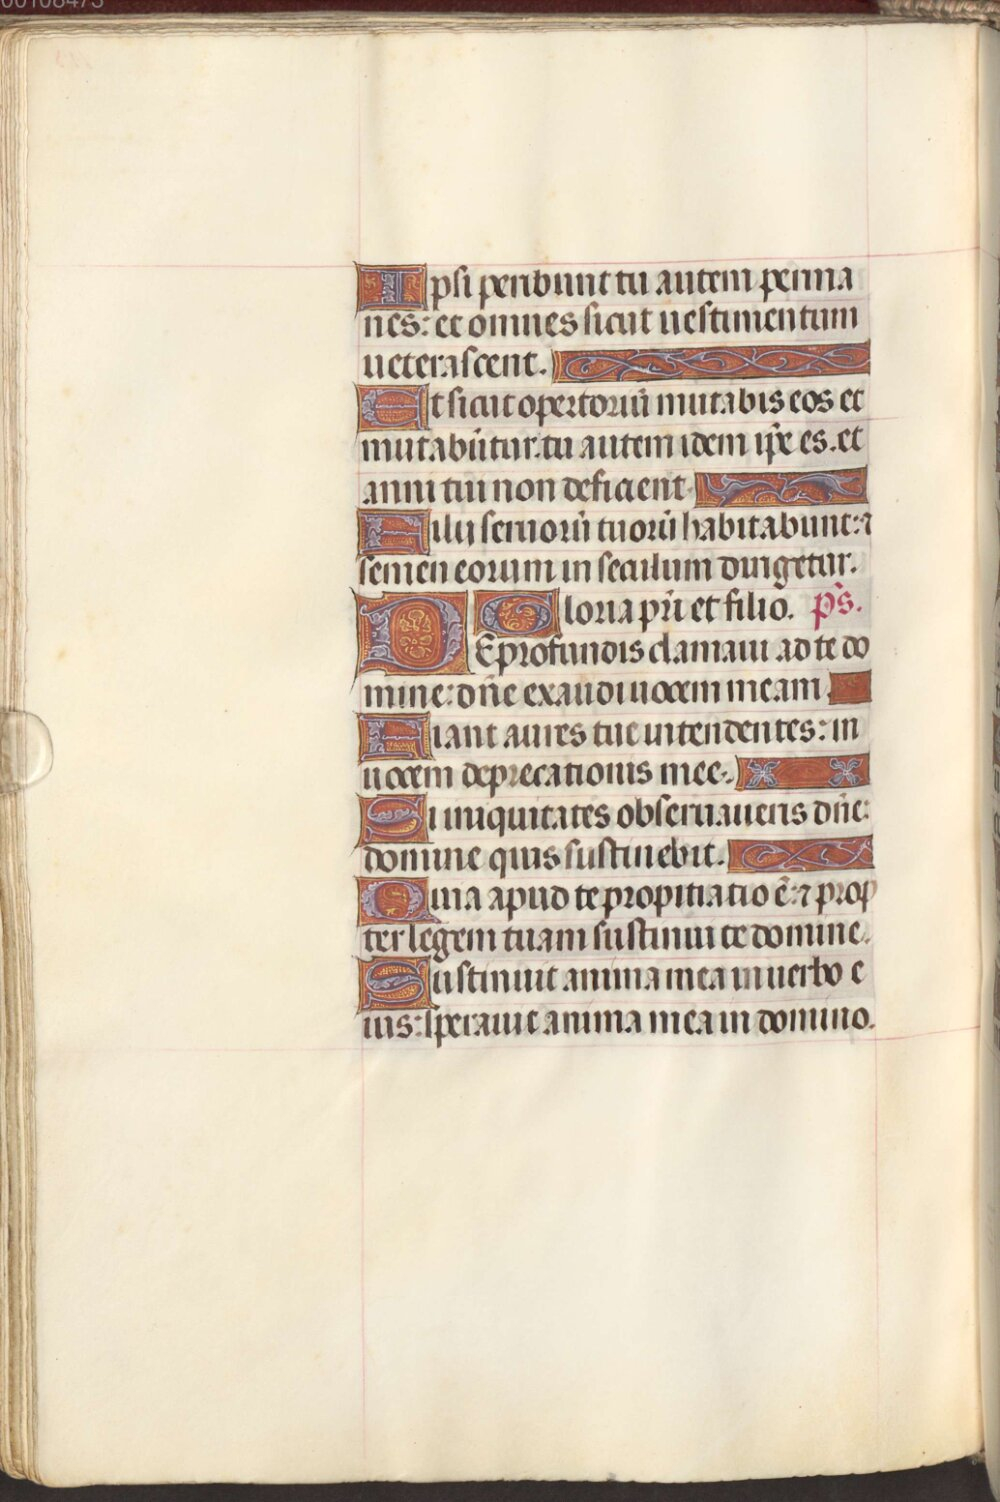 00108473
Ipsi peribunt tu autem perma
nes: et omnes sicut uestimentum
ueterascent.
Et sicut opertoriũ mutabis eos et
mutabũtur. tu autem idem ip̃e es. et
anni tui non deficient.
Filij seruorũ tuorũ habitabunt: ⁊
semen eorum in seculum dirigetur.
Gloria pr̃i et filio. p̃s.
DE profundis clamaui ad te do
mine: dñe exaudi uocem meam
Fiant aures tue intendentes: in
uocem deprecationis mee.
Si iniquitates obseruaueris dñe:
domine quis sustinebit.
Quia apud te propitiatio ẽ: ⁊ prop
ter legem tuam sustinui te domine.
Sustinuit anima mea in uerbo e
ius: sperauit anima mea in domino.